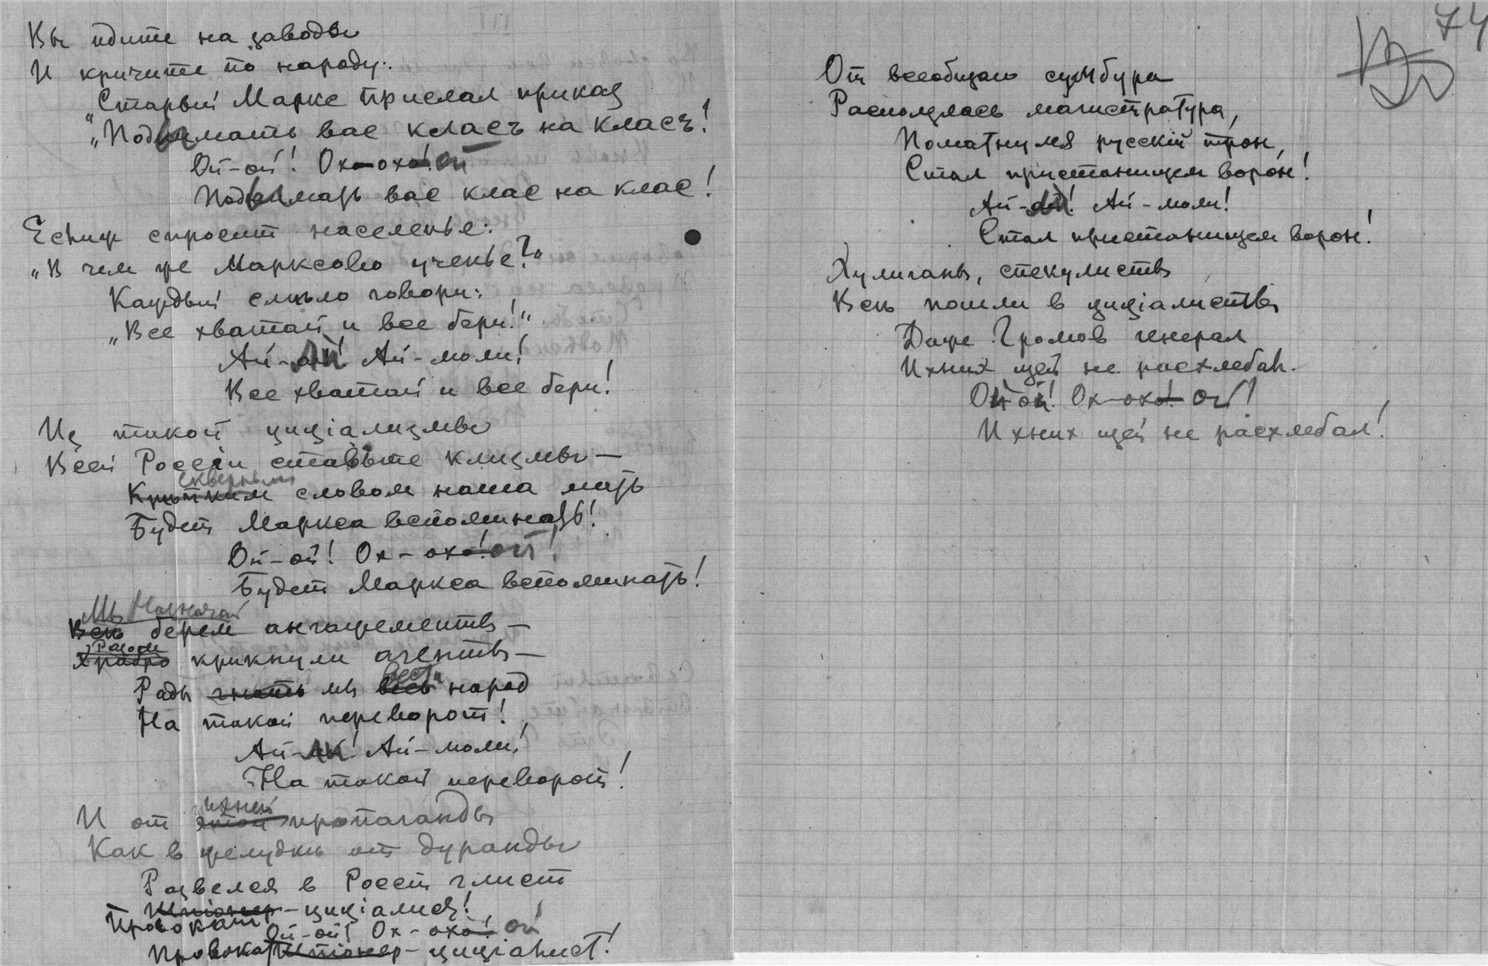 Вы идите на заводы
И кричите по народу:
"Старый Маркс прислал приказ
"Подымать вас класъ на класъ!
Ой-ой! Ох-охо! ой
Подымать вас клас на клас!
Ежели спросит населенье:
"В чем же Марксово ученье?"
Каждый смѣло говори:
"Все хватай и все бери!"
Ай-ай! Ай-моли!
Все хватай и все бери!
Из такой циціализмы
Всей Россіи ставьте клизмы —
скверным
Кротким словом наша мать
Будет Маркса вспоминать!
Ой-ой! Ох-охо! ой!
Будет Маркса вспоминать!
Мы
Всѣ берем ангажементы —
Храбро крикнули агенты —
вести
Рады гнать мы весь народ
На такой переворот!
Ай-ай! Ай-моли!
На такой переворот!
ихней
И от этой пропаганды
Как в желудкѣ от дуранды
Развелся в Россіи глист
Провокат
Шпіонер-циціалист!
Ой-ой! Ох-охо! ой!
Провокат Шпіонер-циціалист!
74
От всеобщаго сумбура
Расползлась магистратура,
Пошатнулся русскій трон,
Стал пристанищем ворон!
Ай-ай! Ай-моли!
Стал пристанищем ворон!
Хулиганы, спекулисты
Всѣ пошли в циціалисты
Даже Громов генерал
Ихних щей не расхлебал.
Ой ой! Ох-охо! ой!
Ихних щей не расхлебал!